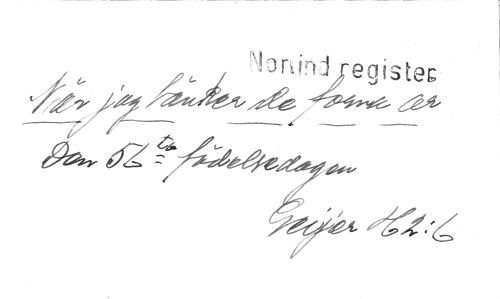 Nonind register
När jag tänker de forna år
Den 56te födelsedagen
Geijer H2:6